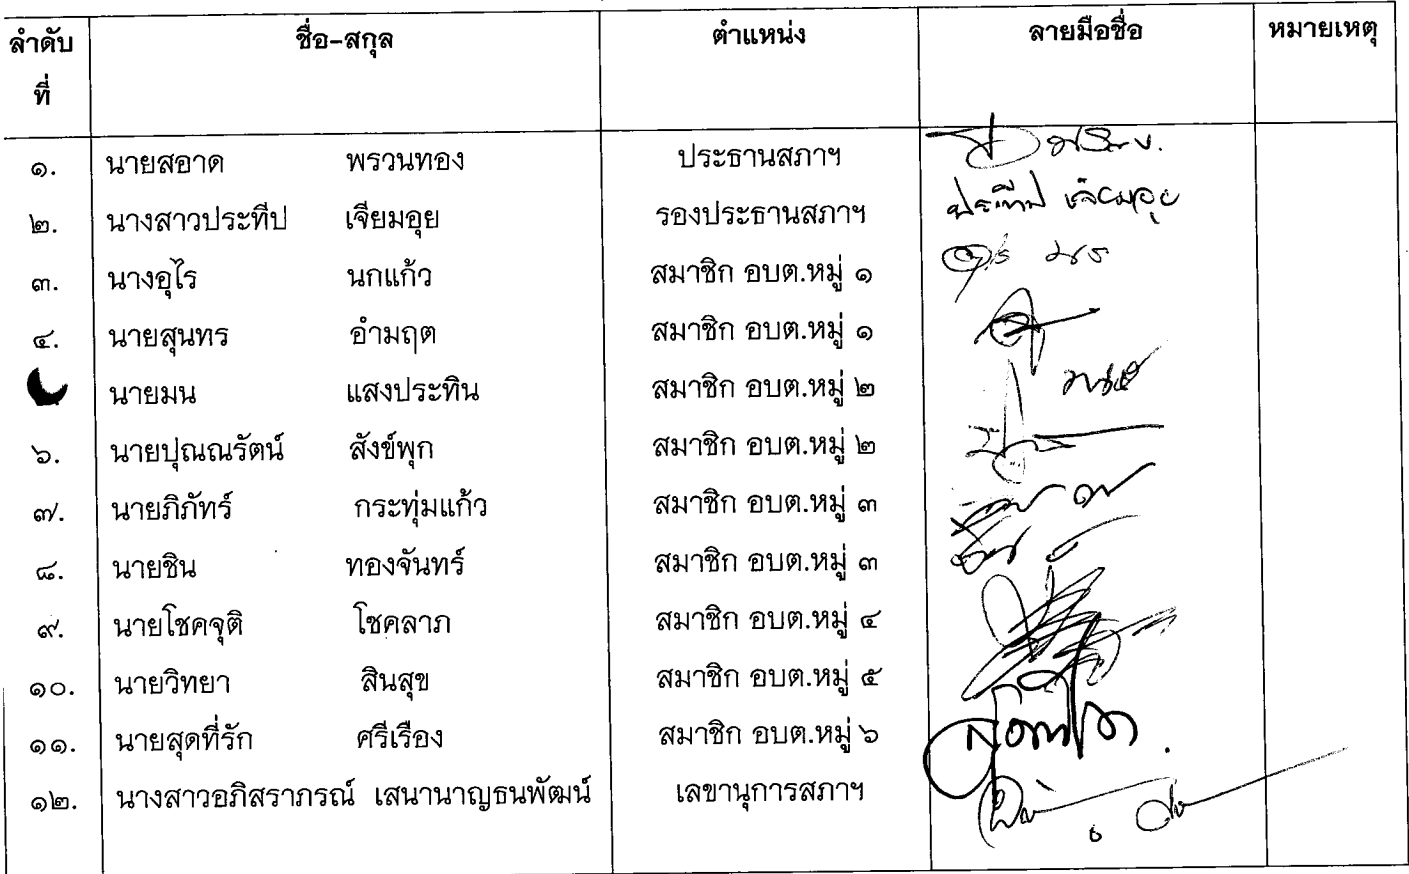 ลำดับที่ ชื่อ-สกุล ตำแหน่ง ลายมือชื่อ หมายเหตุ
๑. นายสอาด พรวนทอง ประธานสภาฯ
๒. นางสาวประทีป เจียมอุย รองประธานสภาฯ ประทีป เจียมอุย
๓. นางอุไร นกแก้ว สมาชิก อบต.หมู่ ๑
๔. นายสุนทร อำมฤต สมาชิก อบต.หมู่ ๑
นายมน แสงประทิน สมาชิก อบต.หมู่ ๒
๖. นายปุณณรัตน์ สังข์พุก สมาชิก อบต.หมู่ ๒
๗. นายภิภัทร์ กระทุ่มแก้ว สมาชิก อบต.หมู่ ๓
๘. นายชิน ทองจันทร์ สมาชิก อบต.หมู่ ๓
๙. นายโชคจุติ โชคลาภ สมาชิก อบต.หมู่ ๔
๑๐. นายวิทยา สินสุข สมาชิก อบต.หมู่ ๕
๑๑. นายสุดที่รัก ศรีเรือง สมาชิก อบต.หมู่ ๖
๑๒. นางสาวอภิสราภรณ์ เสนานาญธนพัฒน์ เลขานุการสภาฯ